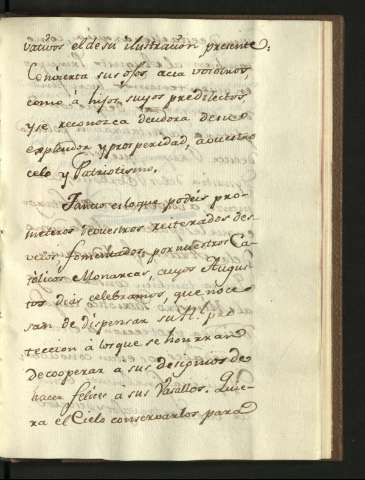 vativos el de su ilustracion presente:
Convierta sus ojos acia vosotros,
como á hijos suyos predilectos,
y se reconozca deudora de su
explendor y prosperidad, a vuestro
celo y Patriotismo.
Tanto es lo que podeis pro-
meteros de vuestros reiterados des-
velos fomentados, por nuestros Ca-
tolicos Monarcas, cuyos Augus-
tos dias celebramos, que no ce-
san de dispensar su Rl. pro
teccion à los que se honrran
de cooperar a sus designios de
hacer felices à sus Vasallos. Quie-
ra el Cielo conservarlos para